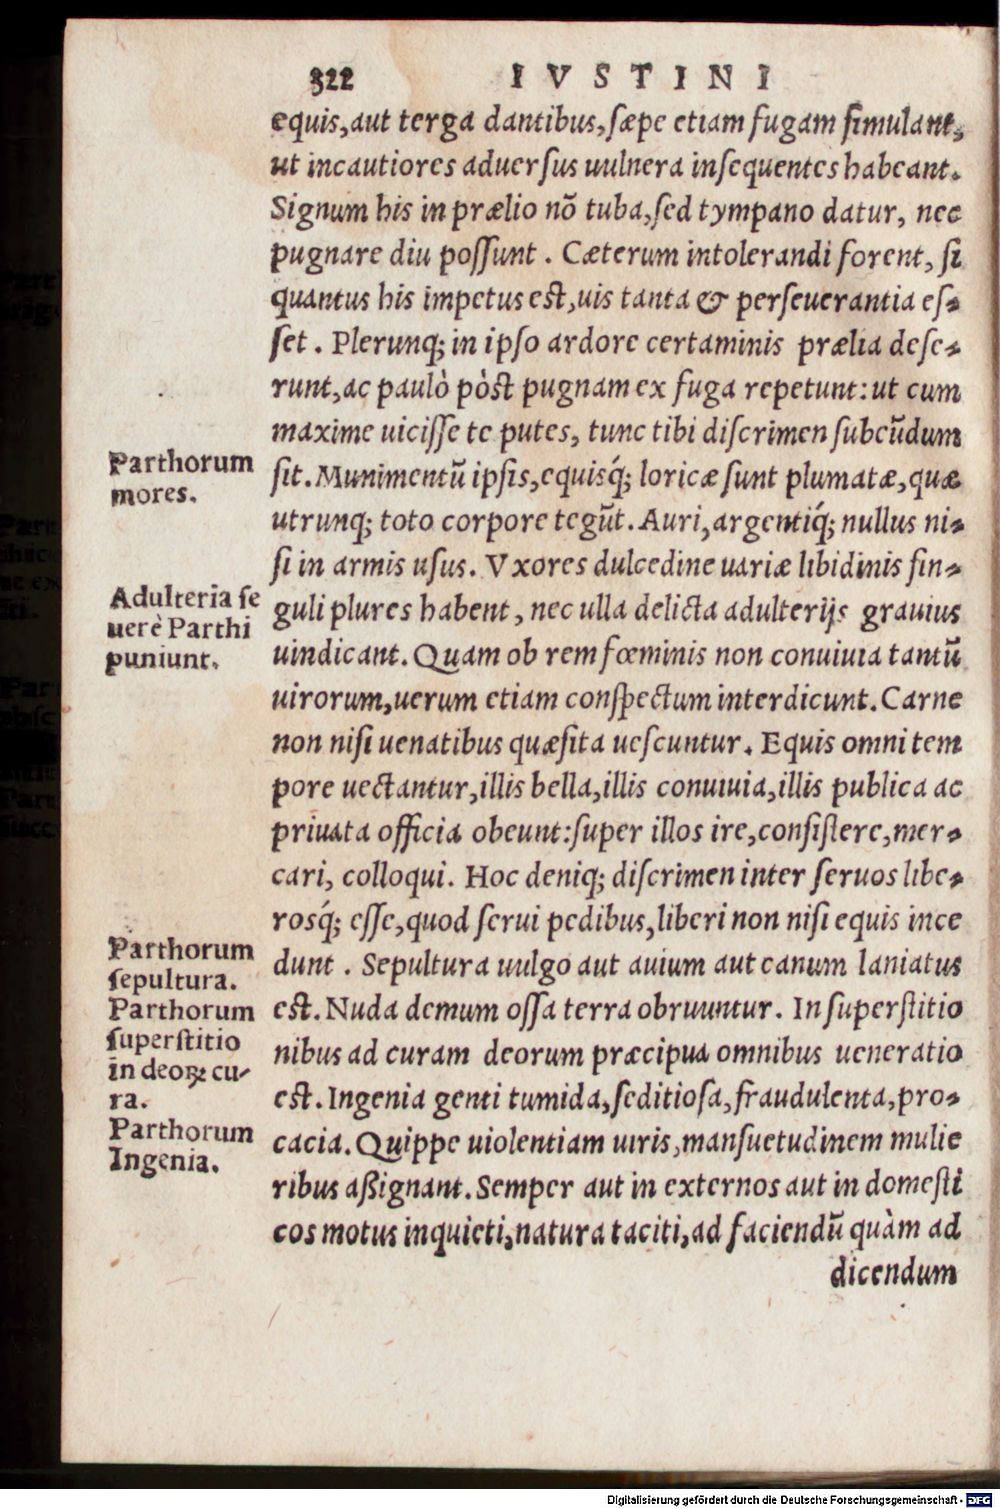 322 IVSTINI
equis,aut terga dantibus,sæpe etiam fugam simulant,
ut incautiores aduersus uulnera insequentes habeant.
Signum his in prælio nõ tuba,sed tympano datur, nec
pugnare diu possunt . Cæterum intolerandi forent, si
quantus his impetus est,uis tanta & perseuerantia es-
set . Plerunq; in ipso ardore certaminis prælia dese-
runt,ac paulò pòst pugnam ex fuga repetunt:ut cum
maxime uicisse te putes, tunc tibi discrimen subeũdum
Parthorum
mores.
sit.Munimentũ ipsis,equisq́; loricæ sunt plumatæ,quæ
utrunq; toto corpore tegũt.Auri,argentiq́; nullus ni-
si in armis usus. Vxores dulcedine uariæ libidinis sin-
Adulteria se
uerè Parthi
puniunt.
guli plures habent, nec ulla delicta adulterijs grauius
uindicant.Quam ob rem fœminis non conuiuia tantũ
uirorum,uerum etiam conspectum interdicunt.Carne
non nisi uenatibus quæsita uescuntur. Equis omni tem
pore uectantur,illis bella,illis conuiuia,illis publica ac
priuata officia obeunt:super illos ire,consistere,mer-
cari, colloqui. Hoc deniq; discrimen inter seruos libe-
rosq́; esse,quod serui pedibus,liberi non nisi equis ince
Parthorum
sepultura.
dunt . Sepultura uulgo aut auium aut canum laniatus
Parthorum
superstitio
in deoꝝ cu-
ra.
est.Nuda demum ossa terra obruuntur. In superstitio
nibus ad curam deorum præcipua omnibus ueneratio
est.Ingenia genti tumida,seditiosa,fraudulenta,pro-
Parthorum
Ingenia.
cacia.Quippe uiolentiam uiris,mansuetudinem mulie
ribus aßignant.Semper aut in externos aut in domesti
cos motus inquieti,natura taciti,ad faciendũ quàm ad
dicendum
Digitalisierung gefördert durch die Deutsche Forschungsgemeinschaft - DFG